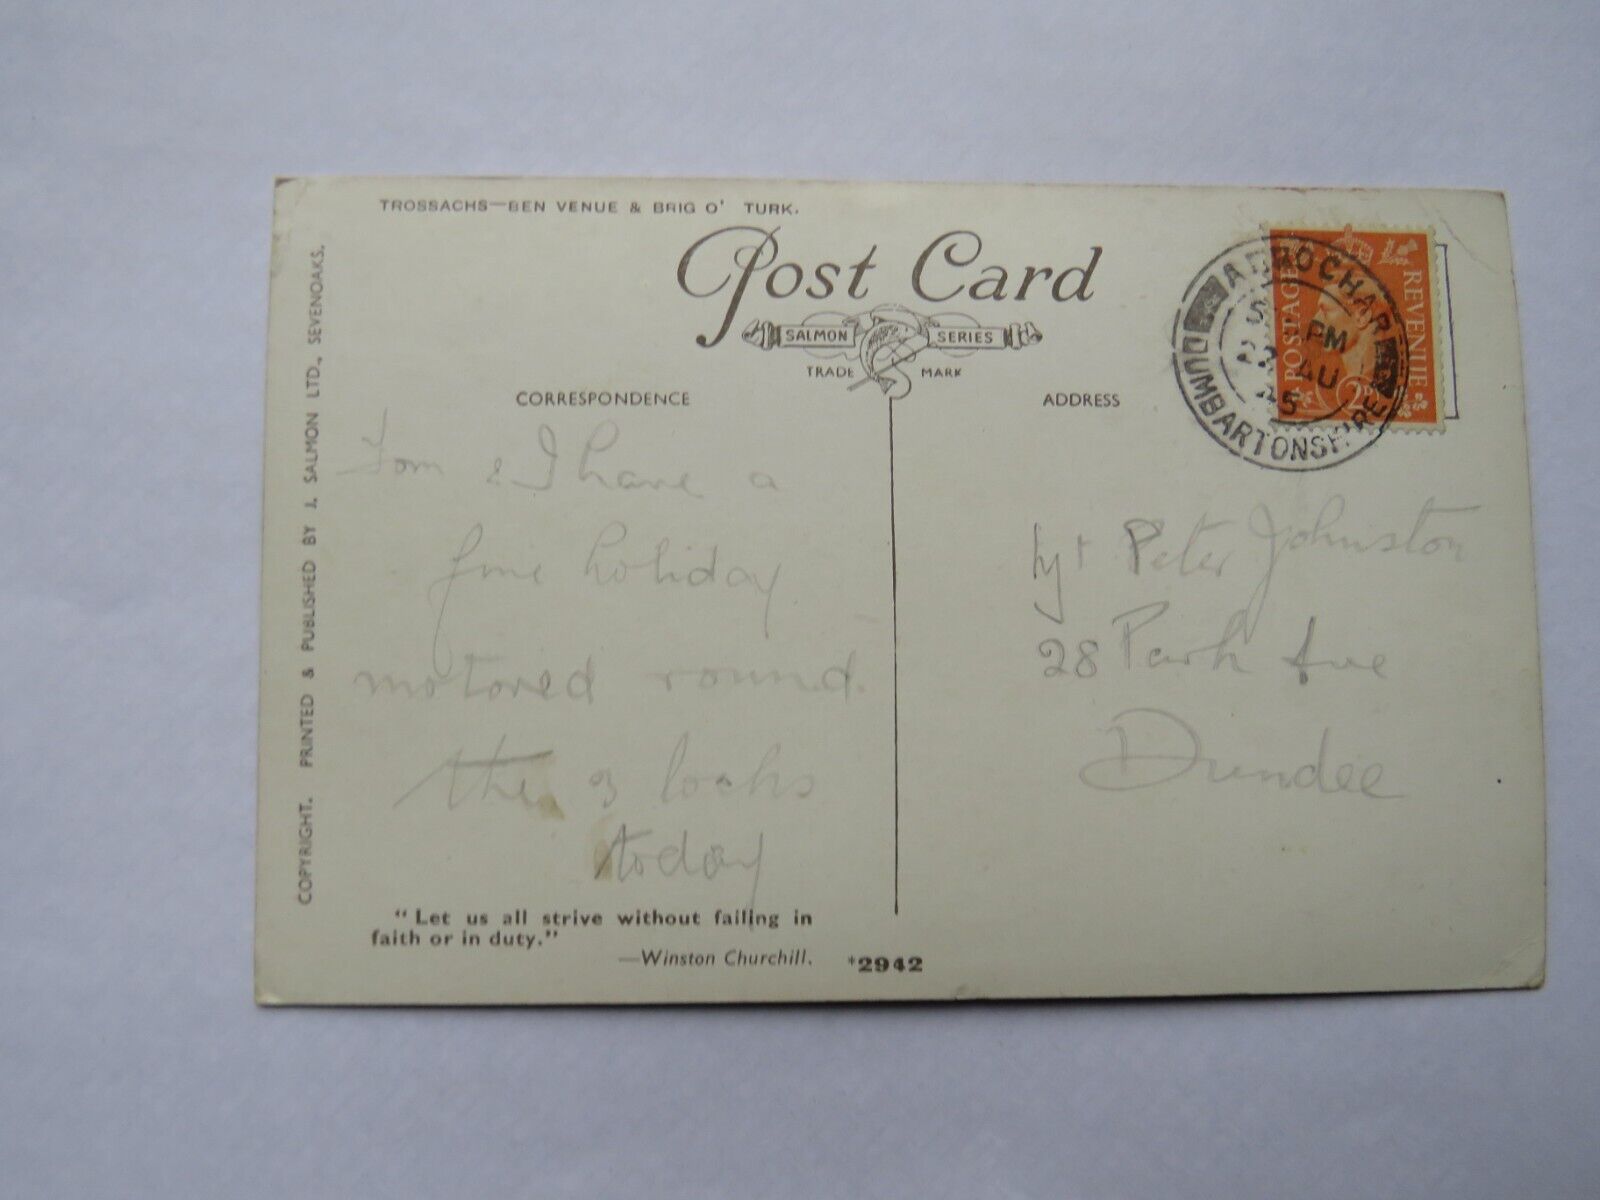 TROSSACHS—BEN VENUE & BRIG O' TURK.
Post Card
SALMON SERIES
TRADE MARK
CORRESPONDENCE
ADDRESS
COPYRIGHT. PRINTED & PUBLISHED BY J. SALMON LTD., SEVENOAKS.
Tom & I have a
fine holiday
motored round
the 3 lochs
today
"Let us all strive without failing in
faith or in duty."
—Winston Churchill.
*2942
POSTAGE REVENUE
2D
ARROCHAR
PM
AU
DUMBARTONSHIRE
Peter Johnston
28 Park Ave
Dundee